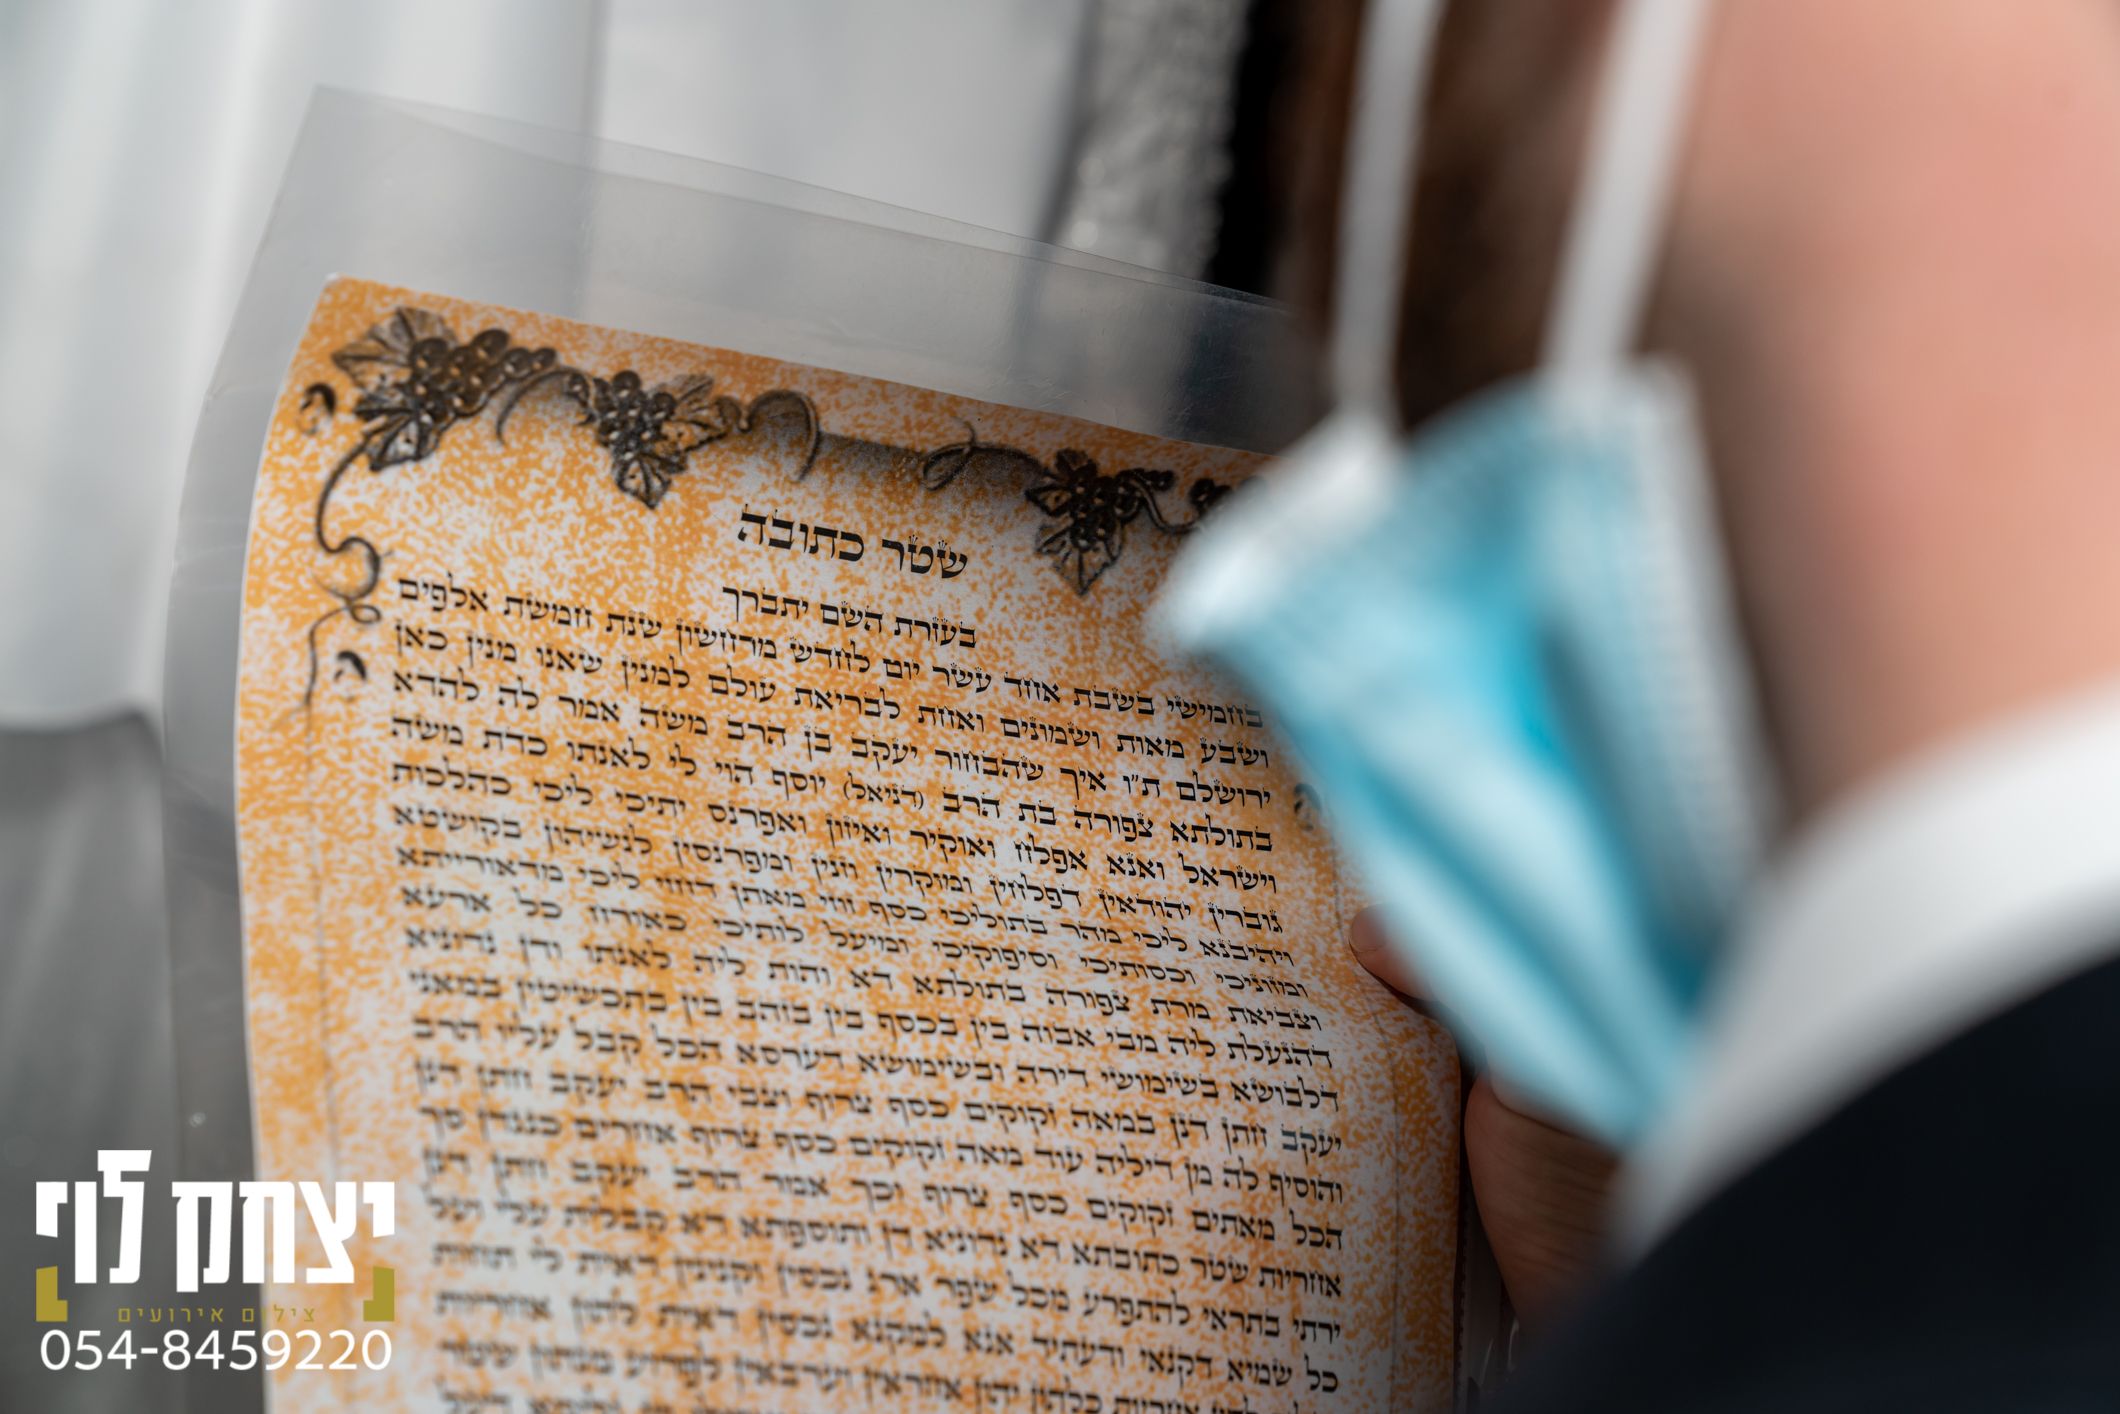 שטר כתובה
בעזרת השם יתברך
בחמישי בשבת אחד עשר יום לחדש מרחשון שנת חמשת אלפים
ושבע מאות ושמונים ואחת לבריאת עולם למנין שאנו מנין כאן
ירושלם ת"ו איך שהבחור יעקב בן הרב משה אמר לה להדא
בתולתא צפורה בת הרב (דניאל) יוסף הוי לי לאנתו כדת משה
וישראל ואנא אפלח ואוקיר ואיזון ואפרנס יתיכי ליכי כהלכות
גוברין יהודאין דפלחין ומוקרין וזנין ומפרנסין לנשיהון בקושטא
ויהיבנא ליכי מהר בתוליכי כסף זוזי מאתן דחזי ליכי מדאורייתא
ומזוניכי וכסותיכי וסיפוקיכי ומיעל לותיכי כאורח כל ארעא
וצביאת מרת צפורה בתולתא דא והות ליה לאנתו ודן נדוניא
דהנעלת ליה מבי אבוה בין בכסף בין בזהב בין בתכשיטין במאני
דלבושא בשימושי דירה ובשימושא דערסא הכל קבל עליו הרב
יעקב חתן דנן במאה זקוקים כסף צרוף וצבי הרב יעקב חתן דנן
והוסיף לה מן דיליה עוד מאה זקוקים כסף צרוף אחרים כנגדן סך
הכל מאתים זקוקים כסף צרוף וכך אמר הרב יעקב חתן דנן
אחריות שטר כתובתא דא נדוניא דן ותוספתא דא קבלית עלי ועל
ירתי בתראי להתפרע מכל שפר ארג נכסין וקנינין דאית לי תחות
כל שמיא דקנאי ודעתיד אנא למקנא נכסין דאית להון אחריות
אחריות כלהון יהון אחראין וערבאין לפרוע מנהון שטר
יצחק לוי
צילום אירועים
054-8459220